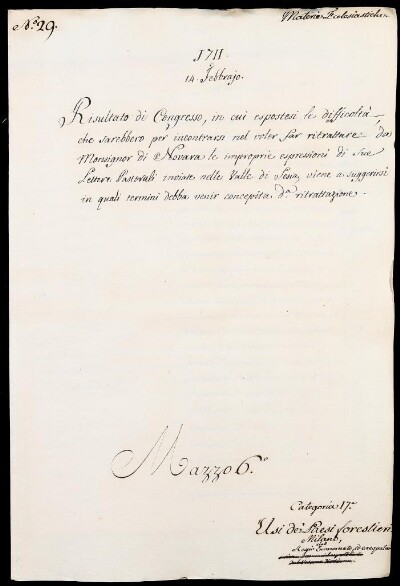 N.º 29.
Materie Ecclesiastiche
1711
14. Febbrajo.
Risultato di Congresso, in cui espostesi le difficoltà,
che sarebbero per incontrarsi nel voler far ritrattare da
Monsignor di Novara le improprie espressioni di sue
Lettere Pastorali inviate nelle Valle di Sesia, viene a suggerirsi
in quali termini debba venir concepita d.ª ritrattazione.
Mazzo 6.º
Categoria 17.ª
Usi de' Paesi forestieri
Milano,